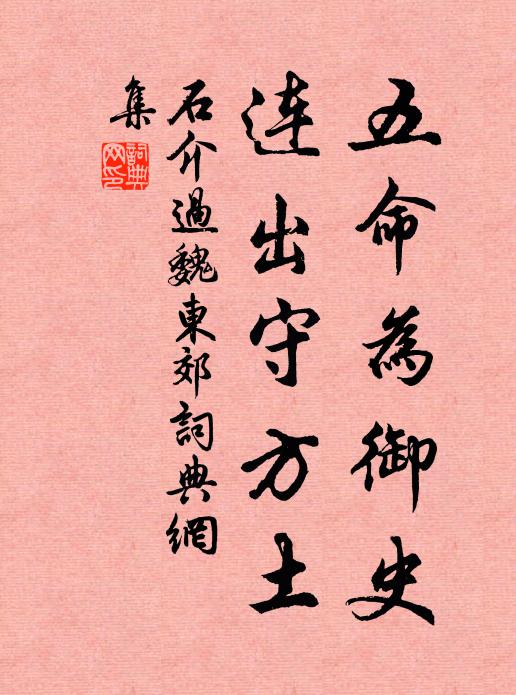 五命為御史
連出守方土
石介過魏東郊詞典網
集
詞典網印